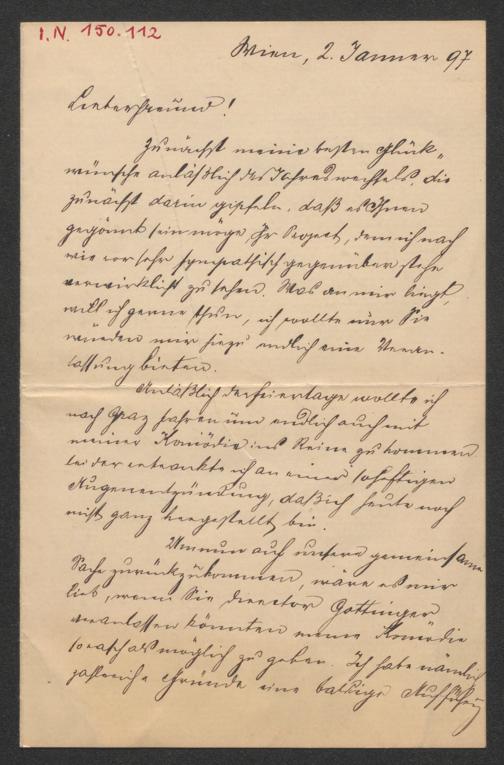 I.N. 150.112
Wien, 2. Jänner 97
Lieber Freund!
Zunächst meine besten Glück-
wünsche anläßlich des Jahreswechsels, die
zunächst darin gipfeln, daß es Ihnen
gegönnt sein möge, Ihr Project, dem ich nach
wie vor sehr sympathisch gegenüber stehe
verwirklicht zu sehen. Was an mir liegt,
will ich gerne thun, ich wollte nur Sie
würden mir hiezu endlich eine Veran-
lassung bieten.
Anläßlich der Feiertage wollte ich
nach Graz fahren um endlich auch mit
meiner Komödie ins Reine zu kommen
leider erkrankte ich an einer so heftigen
Augenentzündung, daß ich heute noch
nicht ganz hergestellt bin.
Um nun auf unsere gemeinsame
Sache zurückzukommen, wäre es mir
lieb, wenn Sie Director Gottinger
veranlassen könnten meine Komödie
so rasch als möglich zu geben. Ich habe nämlich
zahlreiche Gründe eine baldige Aufführung